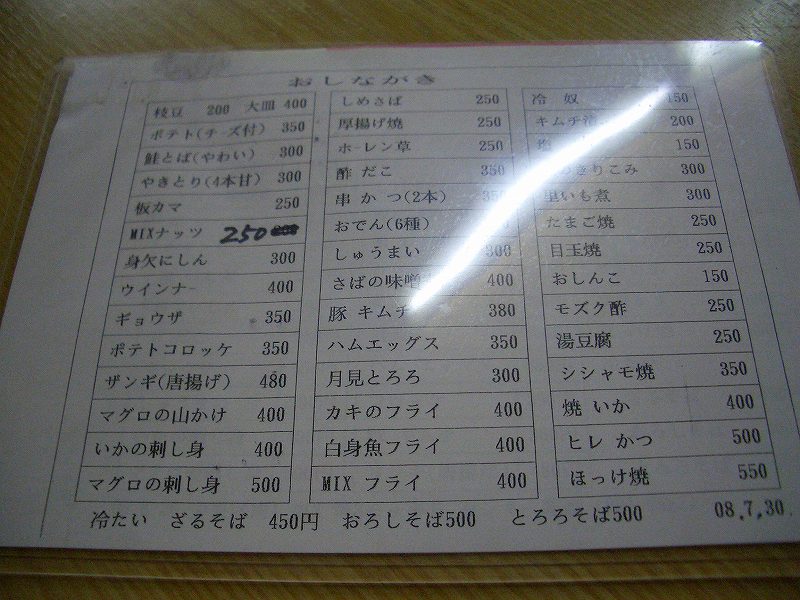 おしながき
枝豆 200 大皿 400
ポテト(チーズ付) 350
鮭とば(やわい) 300
やきとり(4本甘) 300
板カマ 250
MIXナッツ 250
身欠にしん 300
ウインナー 400
ギョウザ 350
ポテトコロッケ 350
ザンギ(唐揚げ) 480
マグロの山かけ 400
いかの刺し身 400
マグロの刺し身 500
しめさば 250
厚揚げ焼 250
ホーレン草 250
酢だこ 350
串かつ(2本) 350
おでん(6種)
しゅうまい 300
さばの味噌 400
豚キムチ 380
ハムエッグス 350
月見とろろ 300
カキのフライ 400
白身魚フライ 400
MIX フライ 400
冷奴 150
キムチ 200
150
きりこみ 300
里いも煮 300
たまご焼 250
目玉焼 250
おしんこ 150
モズク酢 250
湯豆腐 250
シシャモ焼 350
焼いか 400
ヒレかつ 500
ほっけ焼 550
冷たい ざるそば 450円 おろしそば500 とろろそば500 08.7.30.